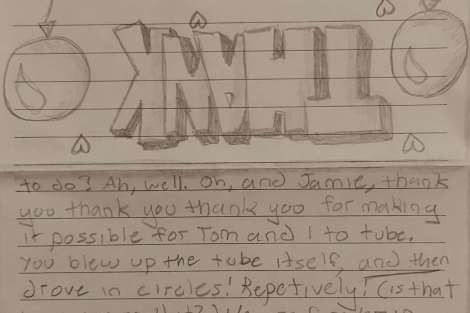 THANK
to do? Ah, well. Oh, and Jamie, thank
you thank you thank you for making
it possible for Tom and I to tube.
You blew up the tube itself, and then
drove in circles! Repetively! (is that